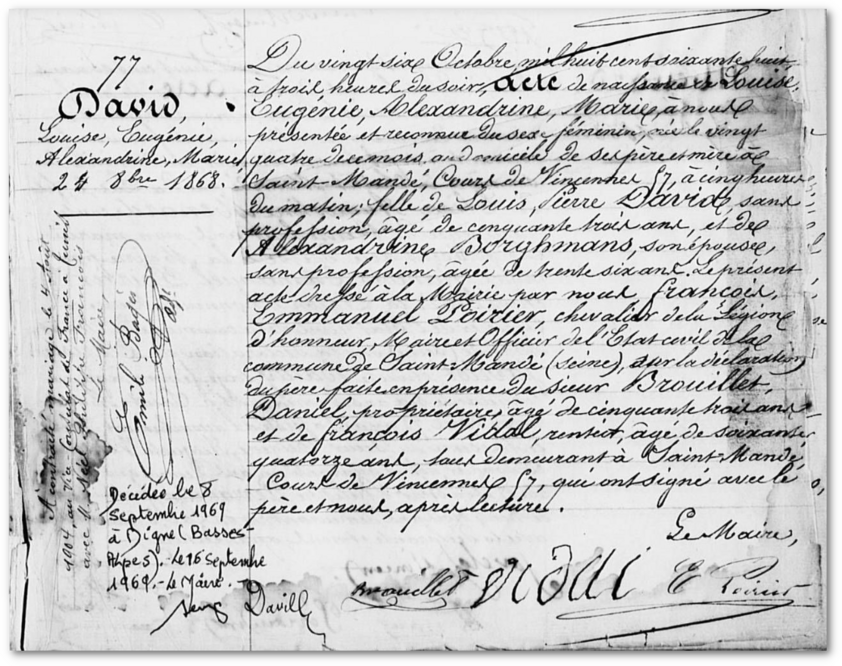 77
David,
Louise, Eugénie,
Alexandrine, Marie
24 8bre 1868.
A contracté mariage le 4 Août
1904 au Vice Consulat de France à Tunis
avec M. Néel Philippe François
Le Maire,
Emile
Décédée le 8
septembre 1969
à Digne (Basses-
Alpes). - Le 16 septembre
1969. - Le Maire. -
Du vingt six Octobre mil huit cent soixante huit
à trois heures du soir, acte de naissance de Louise,
Eugénie, Alexandrine, Marie, à nous
présentée et reconnue du sexe féminin, née le vingt
quatre de ce mois, au domicile de ses père et mère à
Saint-Mandé, Cours de Vincennes 57, à cinq heures
du matin; fille de Louis, Pierre David, sans
profession, âgé de cinquante trois ans, et de
Alexandrine Borghmans, son épouse,
sans profession, âgée de trente six ans. Le présent
acte dressé à la Mairie par nous, François,
Emmanuel Poirier, chevalier de la Légion
d'honneur, Maire et Officier de l'Etat civil de la
commune de Saint-Mandé (Seine), sur la déclaration
du père faite en présence du sieur Brouillet,
Daniel, propriétaire, âgé de cinquante trois ans
et de François Vidal, rentier, âgé de soixante
quatorze ans, tous demeurant à Saint-Mandé,
Cours de Vincennes 57, qui ont signé avec le
père et nous, après lecture.
Le Maire,
David
Brouillet
E Poirier